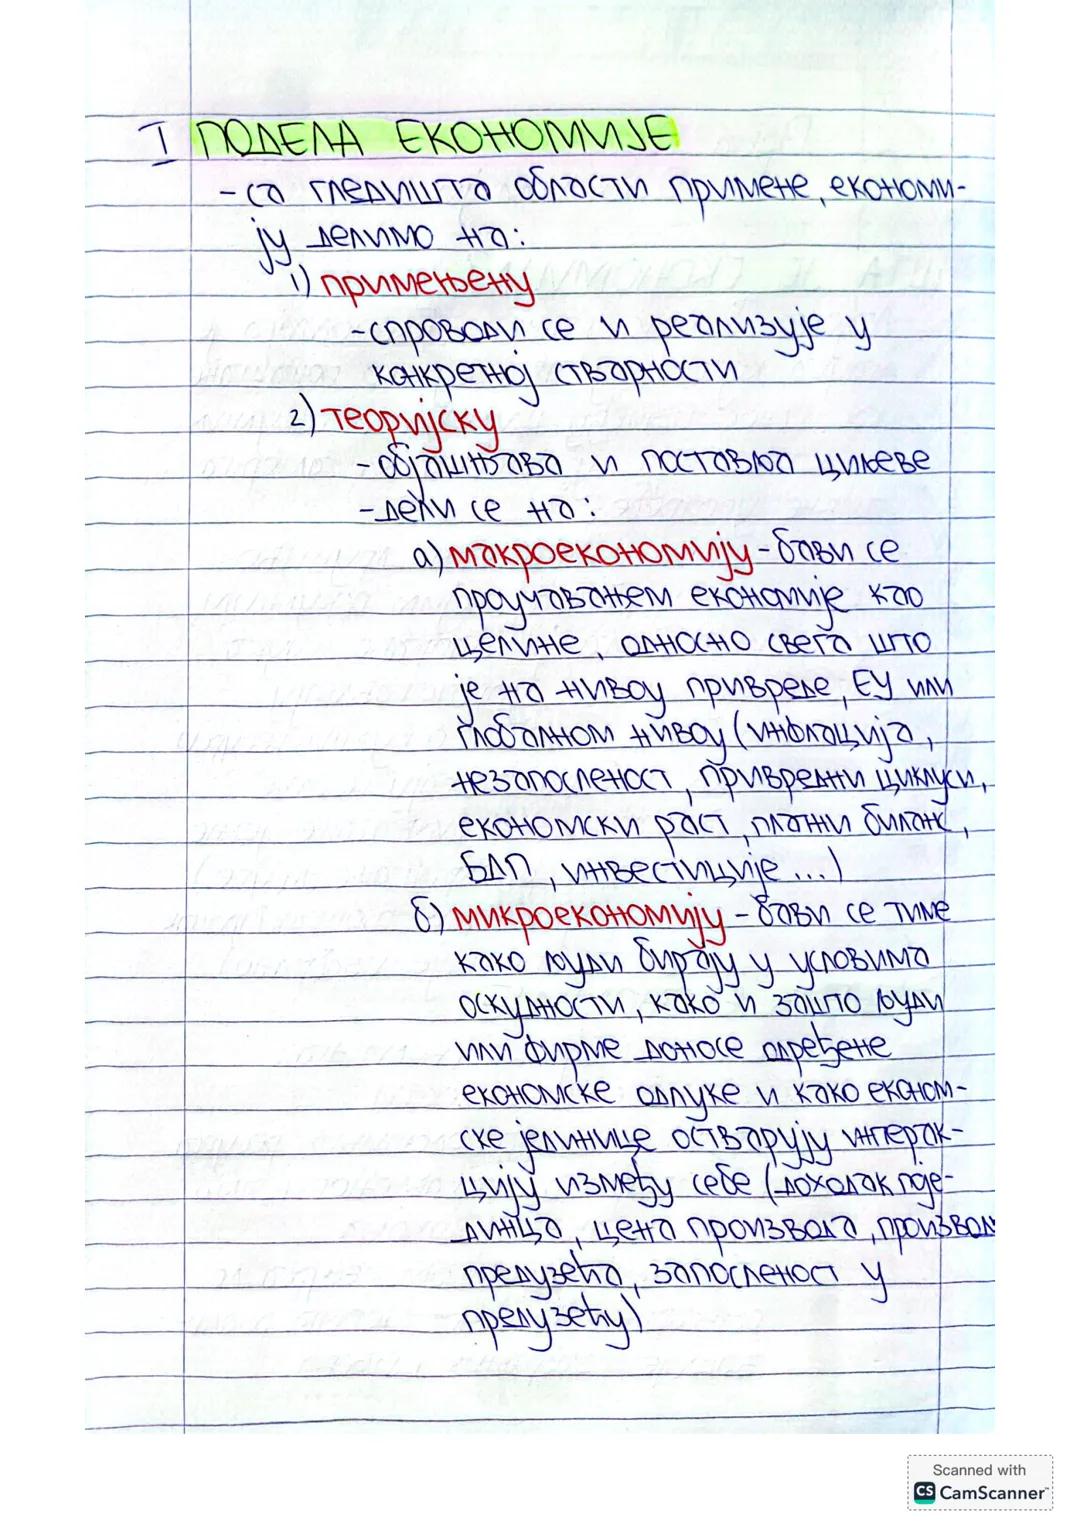 I ПОДЕЛА ЕКОНОМИЈЕ
- са гледишта области примене, економи-
ју делимо на:
1) примењену
- спроводи се и реализује у
конкретној стварности
2) теоријску
- објашњава и поставља циљеве
- дели се на:
а) макроекономију - бави се
проучавањем економије као
целине, односно свега што
је на нивоу привреде, ЕУ или
глобалном нивоу (инфлација,
незапосленост, привредни циклуси,
економски раст, платни биланс,
БДП, инвестиције ...)
б) микроекономију - бави се тиме
како људи бирају у условима
оскудности, како и зашто људи
или фирме доносе одређене
економске одлуке и како економ-
ске јединице остварују интерак-
цију између себе (доходак поје-
динца, цена производа, производ
предузећа, запосленост у
предузећу)
Scanned with
CS CamScanner